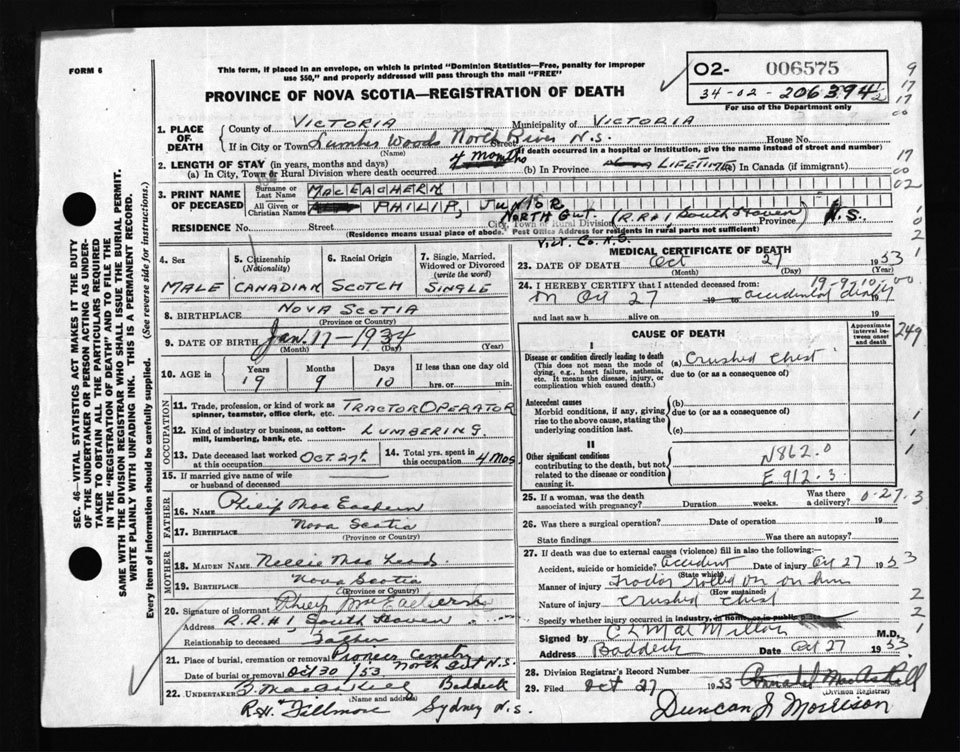 FORM 6
This form, if placed in an envelope, on which is printed "Dominion Statistics—Free, penalty for improper
use $50," and properly addressed will pass through the mail "FREE"
PROVINCE OF NOVA SCOTIA—REGISTRATION OF DEATH
02- 006575
34-02-206394
For use of the Department only
1. PLACE OF DEATH
County of VICTORIA Municipality of VICTORIA
If in City or Town Lumber Woods North River N.S. Street House No.
(Name) If death occurred in a hospital or institution, give the name instead of street and number)
2. LENGTH OF STAY (in years, months and days)
(a) In City, Town or Rural Division where death occurred 4 months (b) In Province LIFETIME (c) In Canada (if immigrant)
3. PRINT NAME OF DECEASED
Surname or Last Name MACEACHERN
All Given or Christian Names PHILIP, JUNIOR
RESIDENCE No. Street NORTH GUT. (R.R#1 South Haven) N.S.
City, Town or Rural Division Province
(Residence means usual place of abode. Post Office Address for residents in rural parts not sufficient)
Vict. Co. N.S.
4. Sex MALE
5. Citizenship (Nationality) CANADIAN
6. Racial Origin SCOTCH
7. Single, Married, Widowed or Divorced (write the word) SINGLE
8. BIRTHPLACE NOVA SCOTIA
(Province or Country)
9. DATE OF BIRTH Jan. 17-1934
(Month) (Day) (Year)
10. AGE in Years 19 Months 9 Days 10 If less than one day old hrs. or min.
OCCUPATION
11. Trade, profession, or kind of work as spinner, teamster, office clerk, etc. TRACTOR OPERATOR
12. Kind of industry or business, as cotton-mill, lumbering, bank, etc. LUMBERING.
13. Date deceased last worked at this occupation OCT. 27th
14. Total yrs. spent in this occupation 4 Mos
15. If married give name of wife or husband of deceased
FATHER
16. Name Philip MacEachern
17. Birthplace Nova Scotia
(Province or Country)
MOTHER
18. MAIDEN NAME Nellie Mac Leod
19. BIRTHPLACE Nova Scotia
(Province or Country)
20. Signature of informant Philip MacEachern
Address R.R#1, South Haven
Relationship to deceased Father
21. Place of burial, cremation or removal Pioneer Cemetery
Date of burial or removal Oct 30/53 North Gut N.S.
22. Undertaker Baddeck
(Name and address)
R.H. Fillmore Sydney N.S.
MEDICAL CERTIFICATE OF DEATH
23. DATE OF DEATH Oct 27 1953
(Month) (Day) (Year)
24. I HEREBY CERTIFY that I attended deceased from:
on Oct 27 19 to accidental death 19
and last saw h alive on 19
CAUSE OF DEATH
Approximate interval between onset and death
I
Disease or condition directly leading to death (a) Crushed Chest
(This does not mean the mode of dying, e.g., heart failure, asthenia, etc. It means the disease, injury, or complication which caused death.)
due to (or as a consequence of)
Antecedent causes
Morbid conditions, if any, giving rise to the above cause, stating the underlying condition last.
(b)
due to (or as a consequence of)
(c)
II
Other significant conditions contributing to the death, but not related to the disease or condition causing it.
N862.0
E 912.3
25. If a woman, was the death associated with pregnancy? Duration weeks. Was there a delivery?
26. Was there a surgical operation? Date of operation 19
State findings Was there an autopsy?
27. If death was due to external causes (violence) fill in also the following:
Accident, suicide or homicide? accident Date of injury Oct 27 1953
(State which)
Manner of injury Tractor rolled on on him
(How sustained)
Nature of injury Crushed Chest
Specify whether injury occurred in industry, in home, or in public place
Signed by C L MacMillan M.D.
Address Baddeck Date Oct 27 1953
28. Division Registrar's Record Number
29. Filed Oct 27 1953
(Division Registrar)
Duncan J. Morrison
SEC. 46—VITAL STATISTICS ACT MAKES IT THE DUTY
OF THE UNDERTAKER OR PERSON ACTING AS UNDER-
TAKER TO OBTAIN ALL THE PARTICULARS REQUIRED
IN THE "REGISTRATION OF DEATH" AND TO FILE THE
SAME WITH THE DIVISION REGISTRAR WHO SHALL ISSUE THE BURIAL PERMIT.
WRITE PLAINLY WITH UNFADING INK. THIS IS A PERMANENT RECORD.
Every item of information should be carefully supplied. (See reverse side for instructions.)